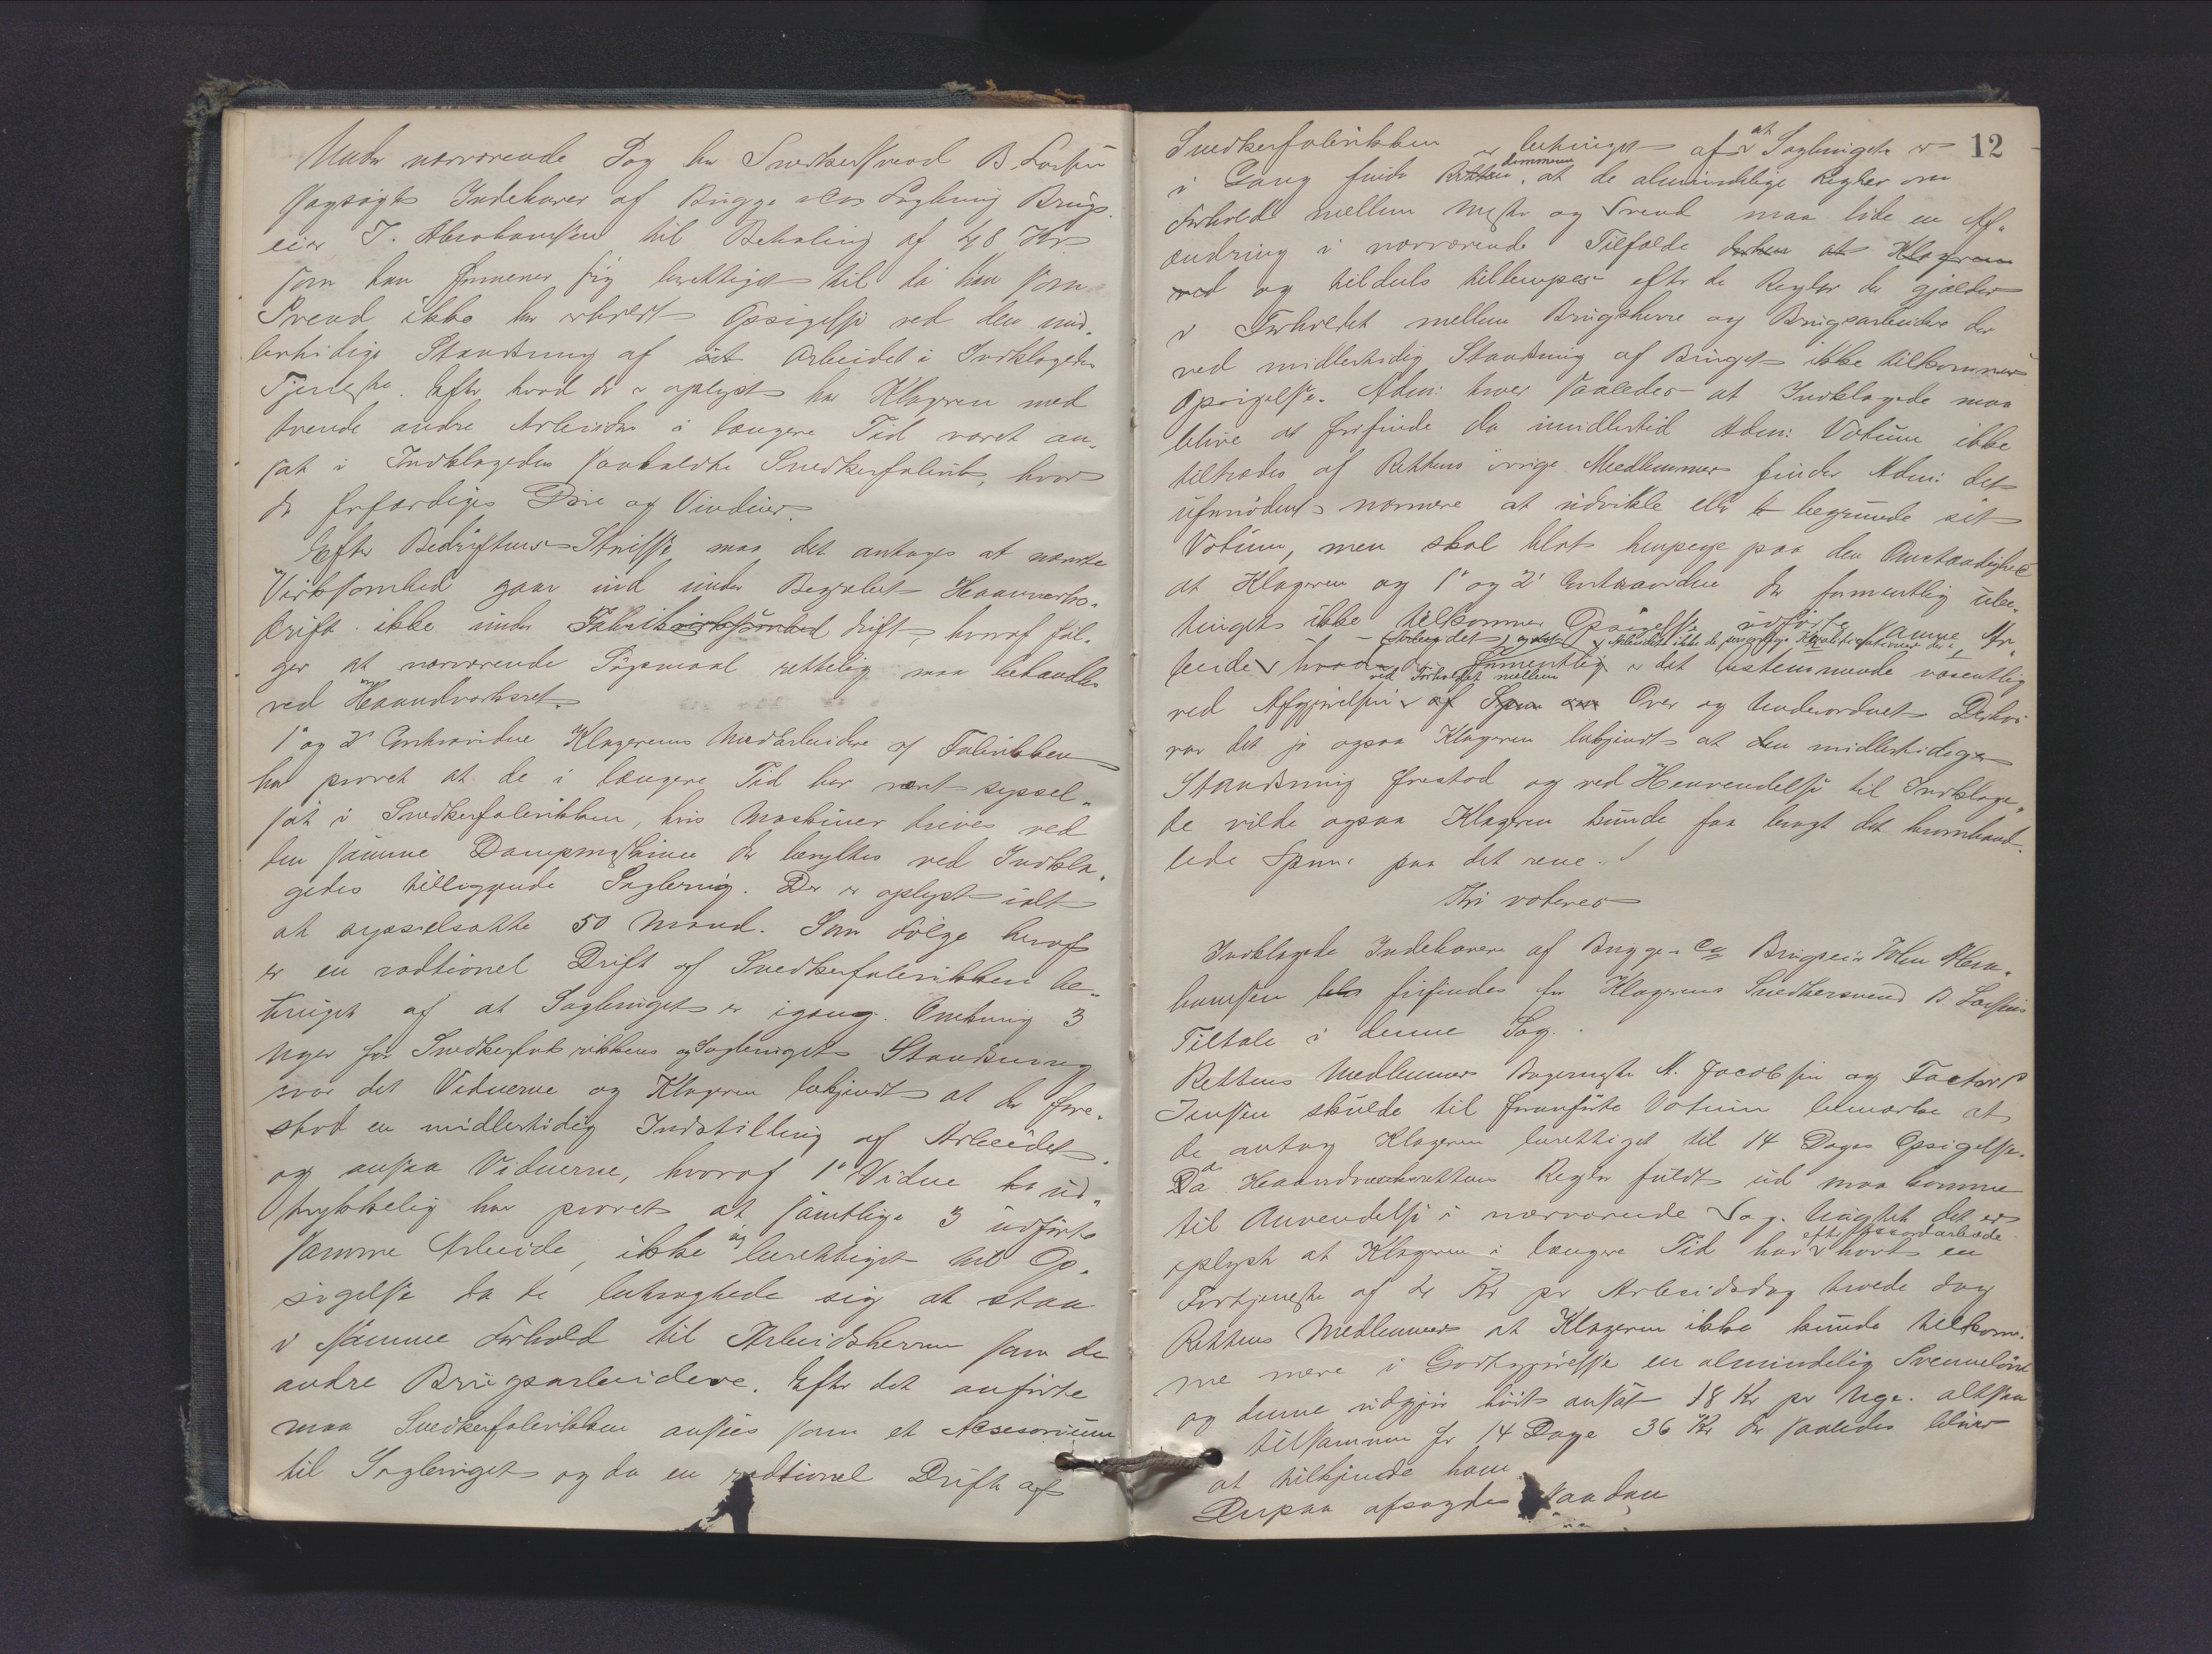 Under nærværende Sag har Snedkersvend B. Larsen
sagsøgt Indehaver af Brügge & Cos Sagbrug Brugs
eier J. Abrahamsen til Betaling af 48 Kr
som han formener sig berettiget til da han som
Svend ikke har erholdt Opsigelse ved den mid-
lertidige Standsning af sit Arbeidet i Indklagedes
Tjeneste. Efter hvad der er oplyst har Klageren med
tvende andre Arbeidere i længere Tid været an-
sat i Indklagedes saakaldte Snedkerfabrik, hvor
der forfærdiges Døre og Vinduer.
Efter Bedriftens Størrelse maa det antages at nævnte
Virksomhed gaar ind under Begrebet Haanverks-
drift ikke under Fabrikvirksomhed drift, hvoraf føl-
ger at nærværende Søgsmaal rettelig maa behandles
ved en Haandværksret.
1ste og 2det Contravidne Klagerens Medarbeidere af Fabrikken
har prøvet at de i længere Tid har været syssel-
sat i Snedkerfabrikken, hvis Maskiner drives ved
den samme Dampmaskine der benyttes ved Indkla-
gedes tilliggende Sagbrug. Der er oplyst ialt
at sysselsatte 50 Mand. Som Følge heraf
er en radtionel Drift af Snedkerfabrikken be-
tinget af at Sagbruget er igang. Omkring 3
Uger før Snedkerfabrikkens og Sagbrugets Standsning
var det Vidnerne og Klageren bekjendt at der fore-
stod en midlertidig Indstilling af Arbeidet
og ansaa Vidnerne, hvoraf 1ste Vidne har ud-
trykkelig har prøvet at samtlige 3 udførte
samme Arbeide, ikke sig berettiget til Op-
sigelse da de betragtede sig at staa
i samme Forhold til Arbeidsherren som de
andre Brugsarbeidere. Efter det anførte
maa Snedkerfabrikken ansees som et Acsesorium
til Sagbruget og da en radtionel Drift af
12
Snedkerfabrikken er betinget af at Sagbruget er
i Gang finder Retten, at de almindelige Regler om
Forhold mellem Mester og Svend maa lide en Af-
ændring i nærværende Tilfælde derhen at Klageren
ved og tildels tillempes efter de Regler der gjælder
i Forholdet mellem Brugsherre og Brugsarbeidere der
ved midlertidig Standsning af Bruget ikke tilkommer
Opsigelse. Adm: troer saaledes at Indklagede maa
blive at frifinde da imidlertid Adm: Votum ikke
tiltrædes af Rettens øvrige Medlemmer finder Adm: det
ufornødent nærmere at udvikle eller begrunde sit
Votum, men skal blot henpege paa den Omstændighed
at Klageren og 1ste og 2det Contravidne der formentlig ube-
tinget ikke tilkommer Opsigelse udførte samme Ar-
beide hvad der formentlig er det bestemmende væsentlig
ved Afgjørelsen ved Forholdet mellem Over og Underordnet Derhos
var det jo ogsaa Klageren bekjendt at den midlertidige
Standsning forestod og ved Henvendelse til Indklage-
de vilde ogsaa Klageren kunde faa bragt det omhand-
lede Spm: paa det rene.
Thi voteres
Indklagede Indehaveren af Brügge & Co Brugseier John Abra-
hamsen frifindes for Klagerens Snedkersvend B. Larsens
Tiltale i denne Sag.
Rettens Medlemmer Bagermester M. Jacobsen og Factor P
Jensen skulde til foranførte Votum bemærke at
de antog Klageren berettiget til 14 Dages Opsigelse.
Da Haandværksrettens Regler fuldt ud maa komme
til Anvendelse i nærværende Sag. Uagtet det er
oplyst at Klageren i længere Tid har efter Accordarbeide havt en
Fortjeneste af 4 Kr pr Arbeidsdag troede dog
Rettens Medlemmer at Klageren ikke kunde tilkom-
me mere i Godtgjørelse en almindelig Svennelønd
og denne udgjør høit ansat 18 Kr pr Uge. altsaa
tilsammen for 14 Dage 36 Kr der saaledes bliver
at tilkjende ham.
Derpaa afsagdes saadan